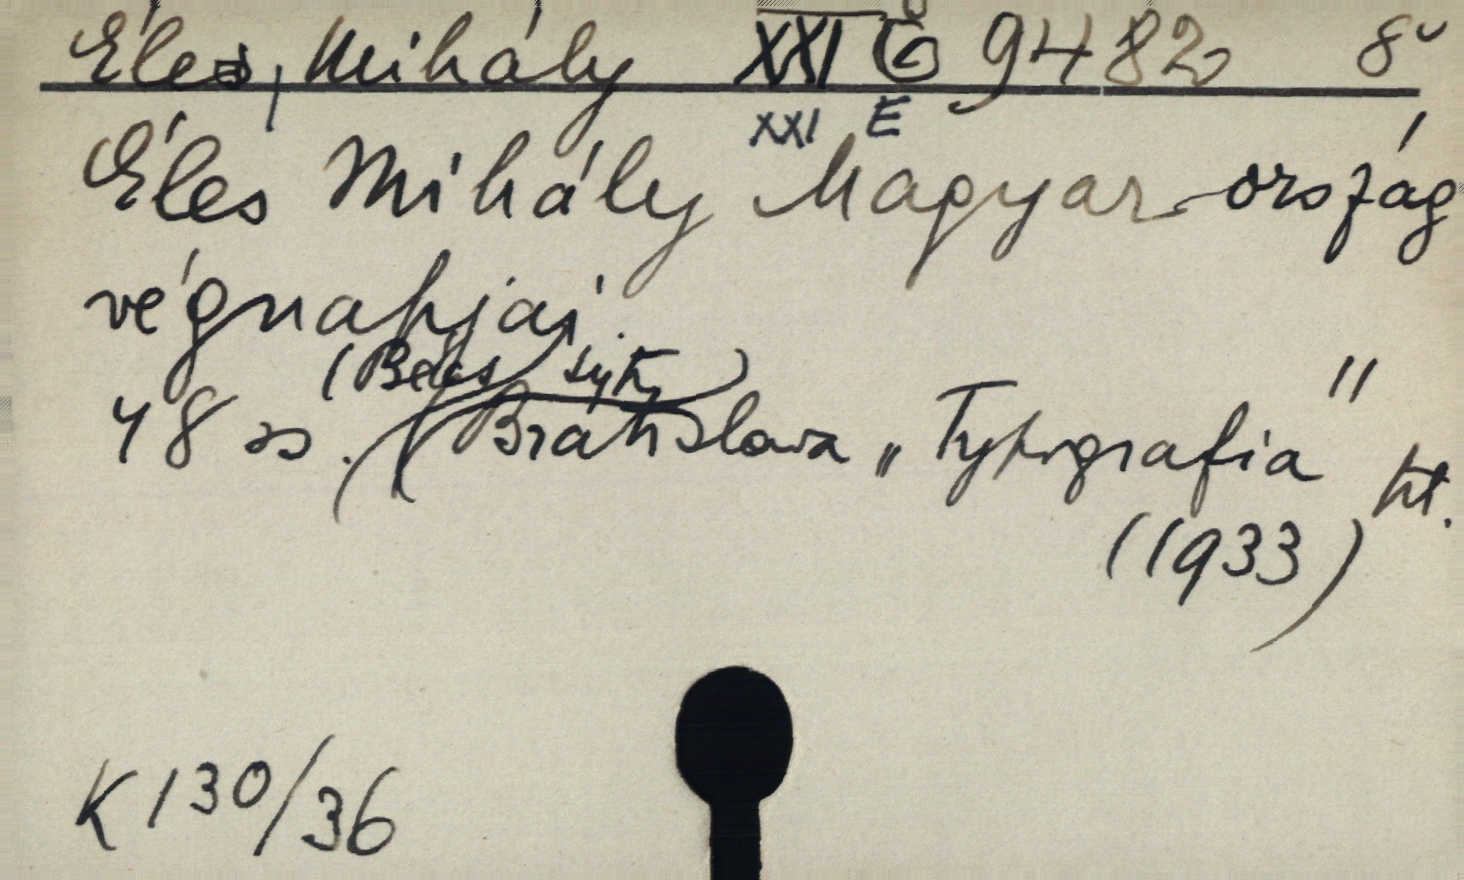 Éles, Mihály XXI G 9482 8°
XXI E
Éles Mihály Magyar-ország
végnapjai.
(Bécs
48 ss. (Bratislava „Typografia" kt.
(1933)
K 130/36